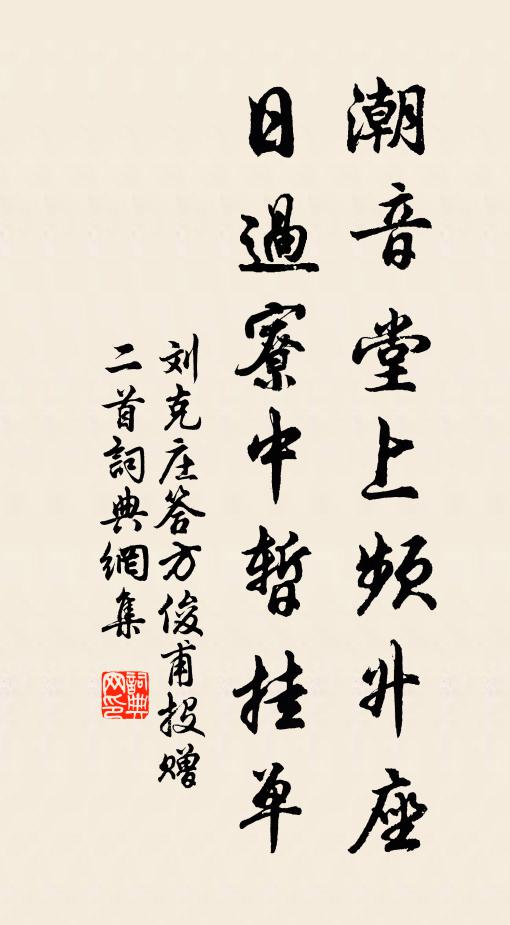 潮音堂上频升座
日過寮中暫挂单
刘克庄答方俊甫投赠
二首詞典網集
詞典
网印